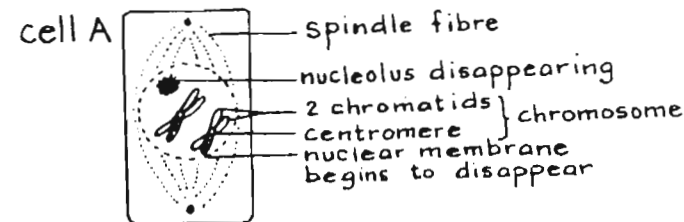 cell A
spindle fibre
nucleolus disappearing
2 chromatids
centromere
chromosome
nuclear membrane
begins to disappear